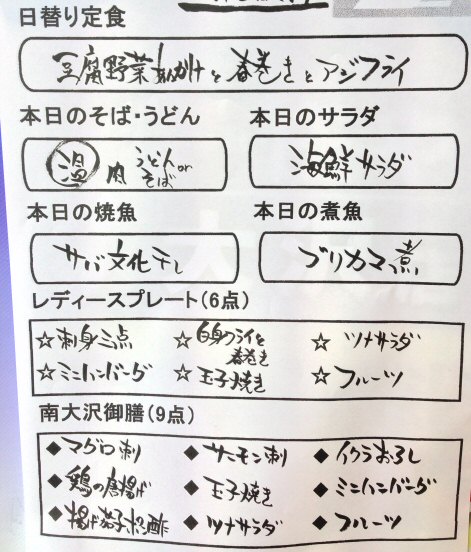 日替り定食
豆腐野菜あんかけと春巻きとアジフライ
本日のそば・うどん
温 肉 うどん or そば
本日のサラダ
海鮮サラダ
本日の焼魚
サバ文化干し
本日の煮魚
ブリカマ煮
レディースプレート(6点)
☆刺身三点 ☆白身フライと春巻き ☆ツナサラダ
☆ミニハンバーグ ☆玉子焼き ☆フルーツ
南大沢御膳(9点)
◆マグロ刺 ◆サーモン刺 ◆イクラおろし
◆鶏の唐揚げ ◆玉子焼き ◆ミニハンバーグ
◆揚げ茄子ポン酢 ◆ツナサラダ ◆フルーツ